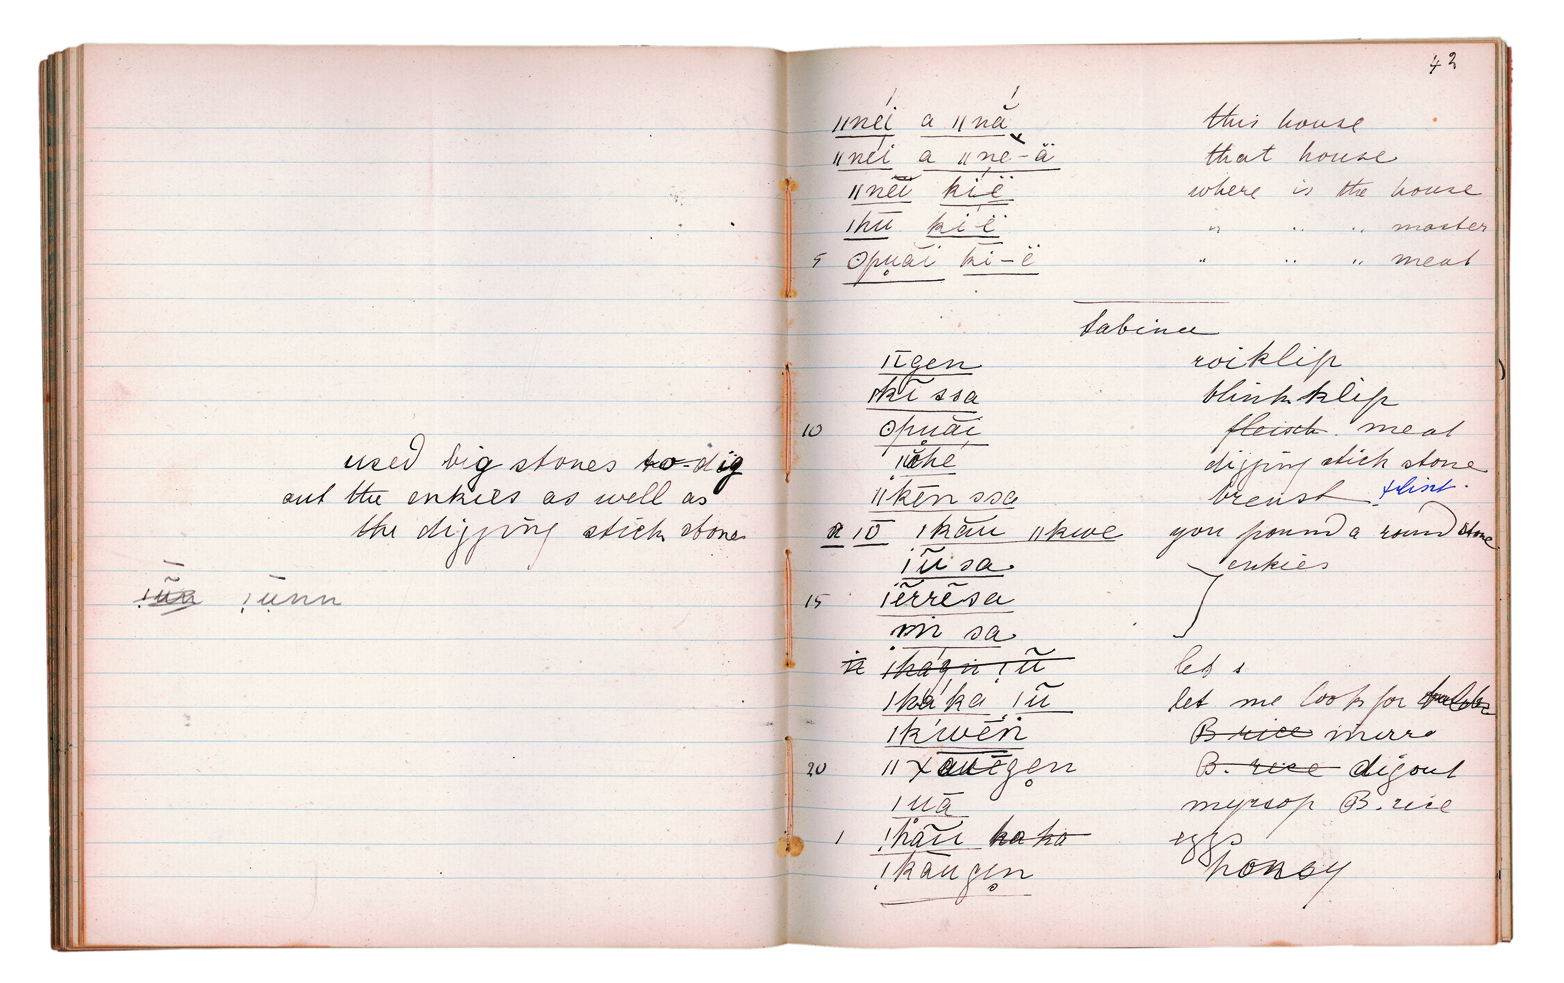 used big stones to dig
out the enkies as well as
the digging stick stone
!ũn !ūnn
42
ǁnéi a ǁnā́ this house
ǁnéi a ǁne-ä that house
ǁnei kïë where is the house
ǀkū ki-ë " " " master
5 ʘpuāi ki-ë " " " meat
Sabina
ǀīgen roiklip
kī ssa blink klip
10 ʘpuāi fleisch. meat
digging stick stone
ǁkēn ssa breast flint.
a ǀō ǀkāu ǁkwe you pound a round stone
ǀũ sa enkies
15 ǀērrēsa
sa
let s
ǀkáka ǀũ let me look for
ǀkwēn B rice mirra
20 ǁxauēgen B. rice dig out
ǀuā myrsop B. rice
1 !kāu kaka eggs
!kāugen honey